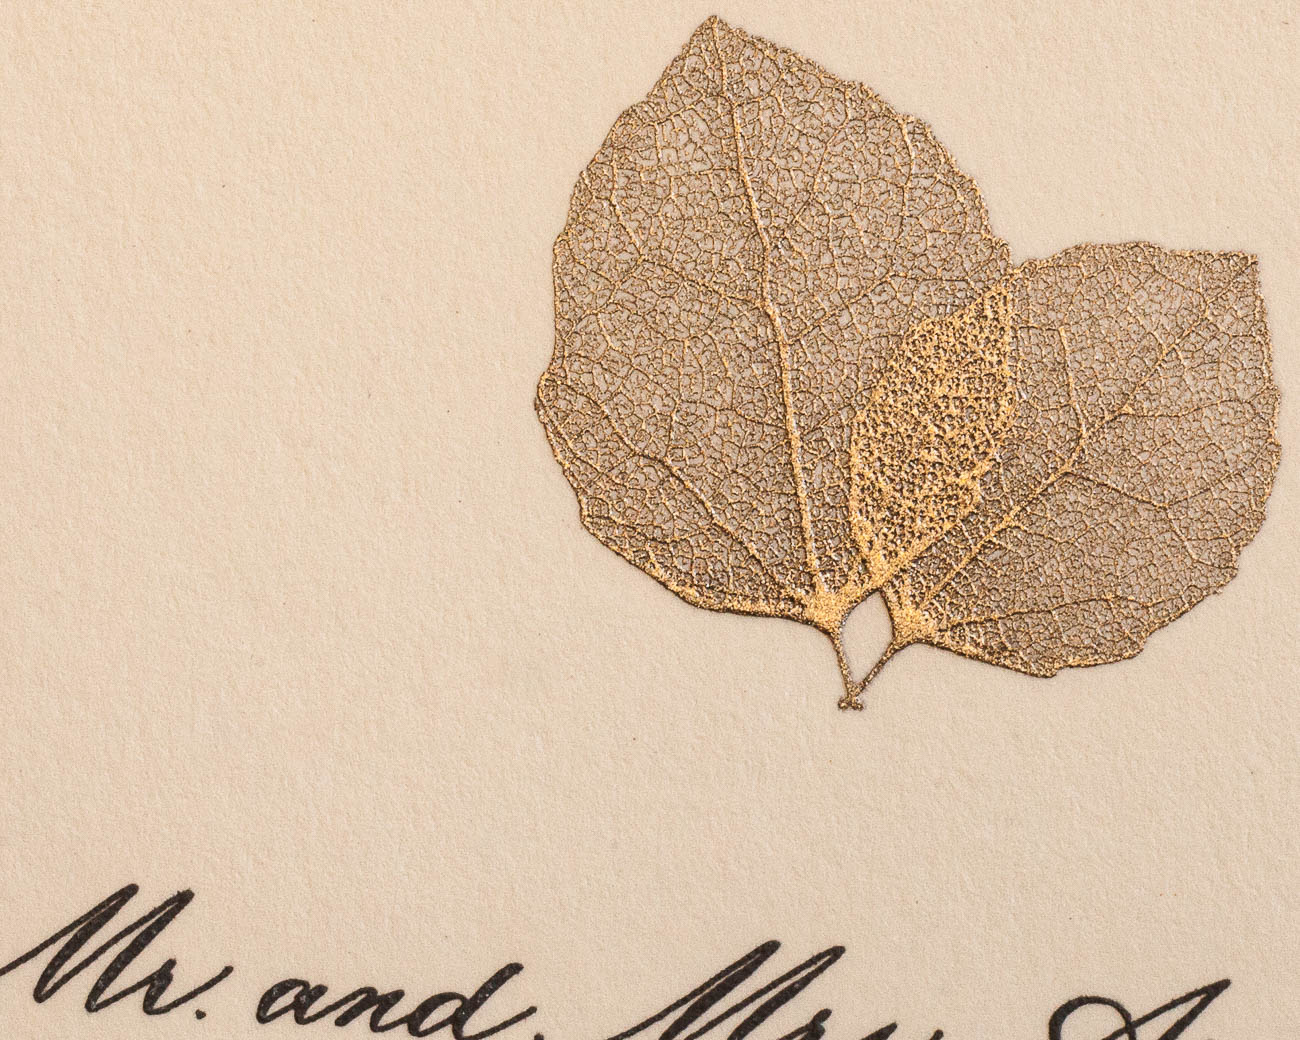 Mr. and. Mrs.